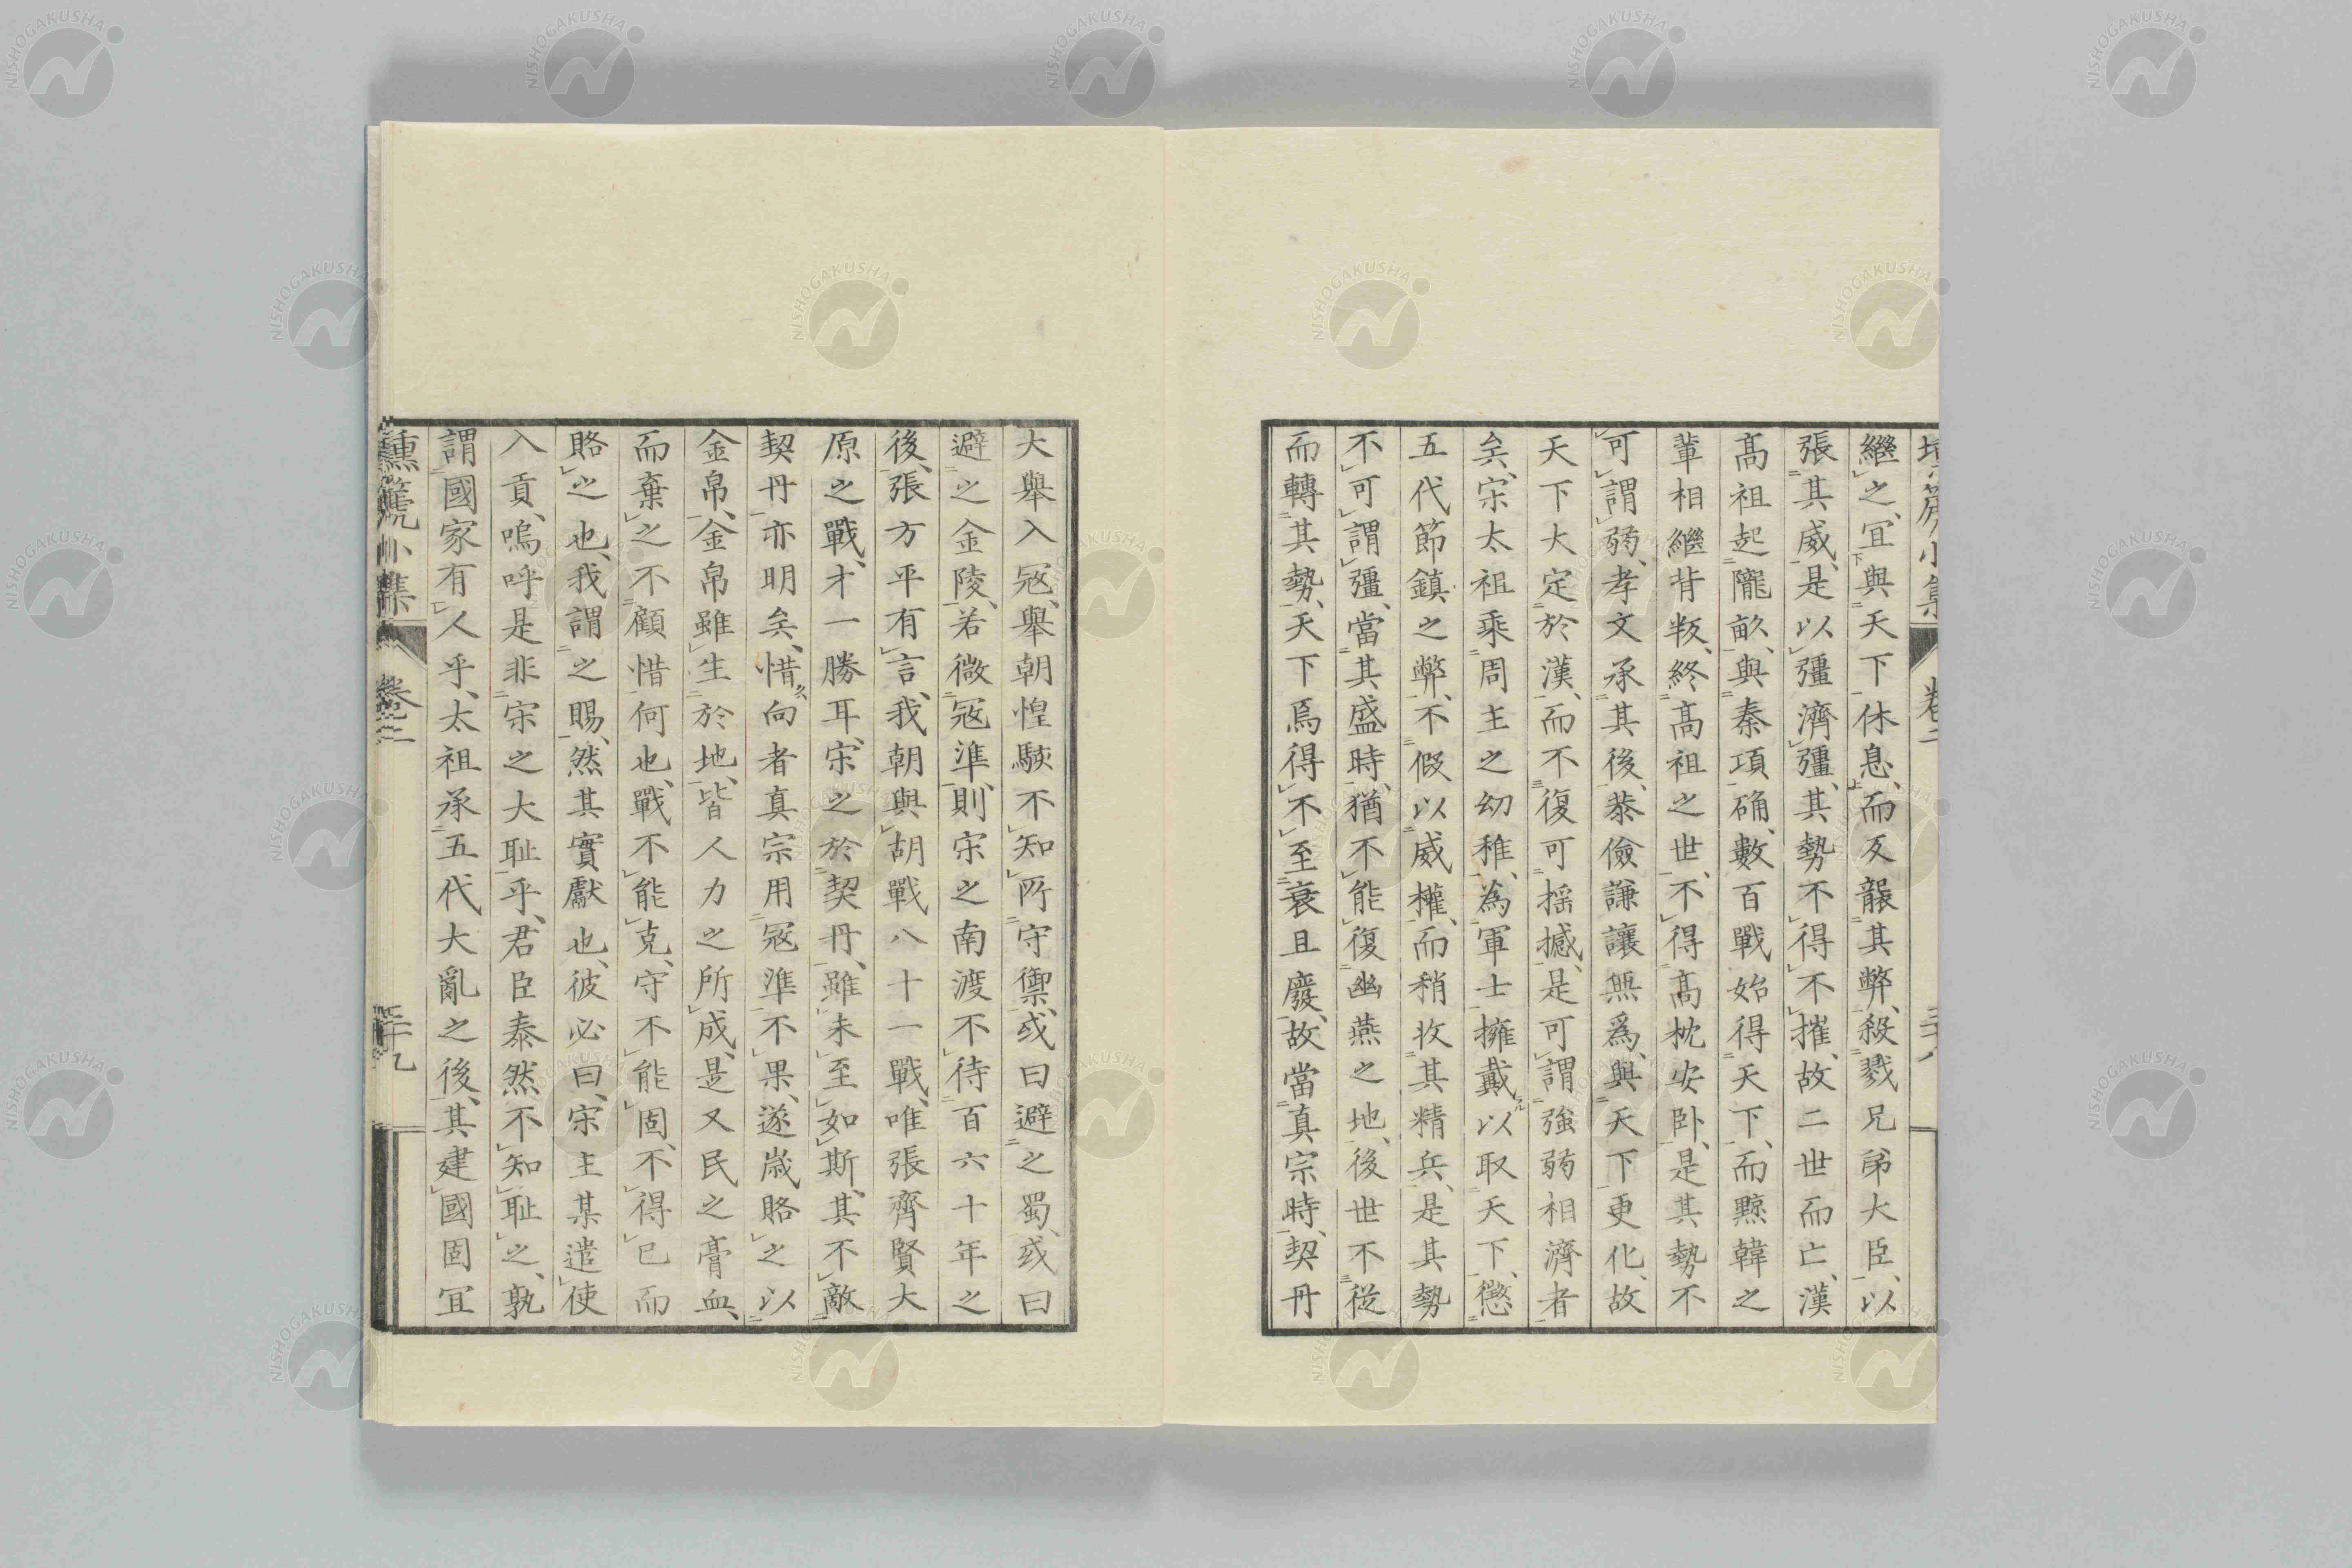 繼之、宜與天下休息、而反襲其弊、殺戮兄弟大臣、以
張其威、是以彊濟彊、其勢不得不摧、故二世而亡、漢
高祖起隴畝、與秦項确、數百戰始得天下、而黥韓之
輩相繼背叛、終高祖之世、不得高枕安臥、是其勢不
可謂弱、孝文承其後、恭儉謙讓無爲、與天下更化、故
天下大定於漢、而不復可揺撼、是可謂強弱相濟者
矣、宋太祖乘周主之幼稚、為軍士擁戴以取天下、懲
五代節鎮之弊、不假以威權、而稍收其精兵、是其勢
不可謂彊、當其盛時、猶不能復幽燕之地、後世不從
而轉其勢、天下焉得不至衰且廢、故當真宗時、契丹
大舉入寇、舉朝惶駭不知所守禦、或曰避之蜀、或曰
避之金陵、若微寇準、則宋之南渡不待百六十年之
後、張方平有言、我朝與胡戰八十一戰、唯張齊賢大
原之戰、才一勝耳、宋之於契丹、雖未至如斯、其不敵
契丹亦明矣、惜向者真宗用寇準不果、遂嵗賂之以
金帛、金帛雖生於地、皆人力之所成、是又民之膏血、
而棄之不顧惜何也、戰不能克、守不能固、不得已而
賂之也、我謂之賜、然其實獻也、彼必曰、宋主某遣使
入貢、嗚呼是非宋之大耻乎、君臣泰然不知耻之、孰
謂國家有人乎、太祖承五代大亂之後、其建國固宜
壎篪小集 卷二 二十九
NISHOGAKUSHA